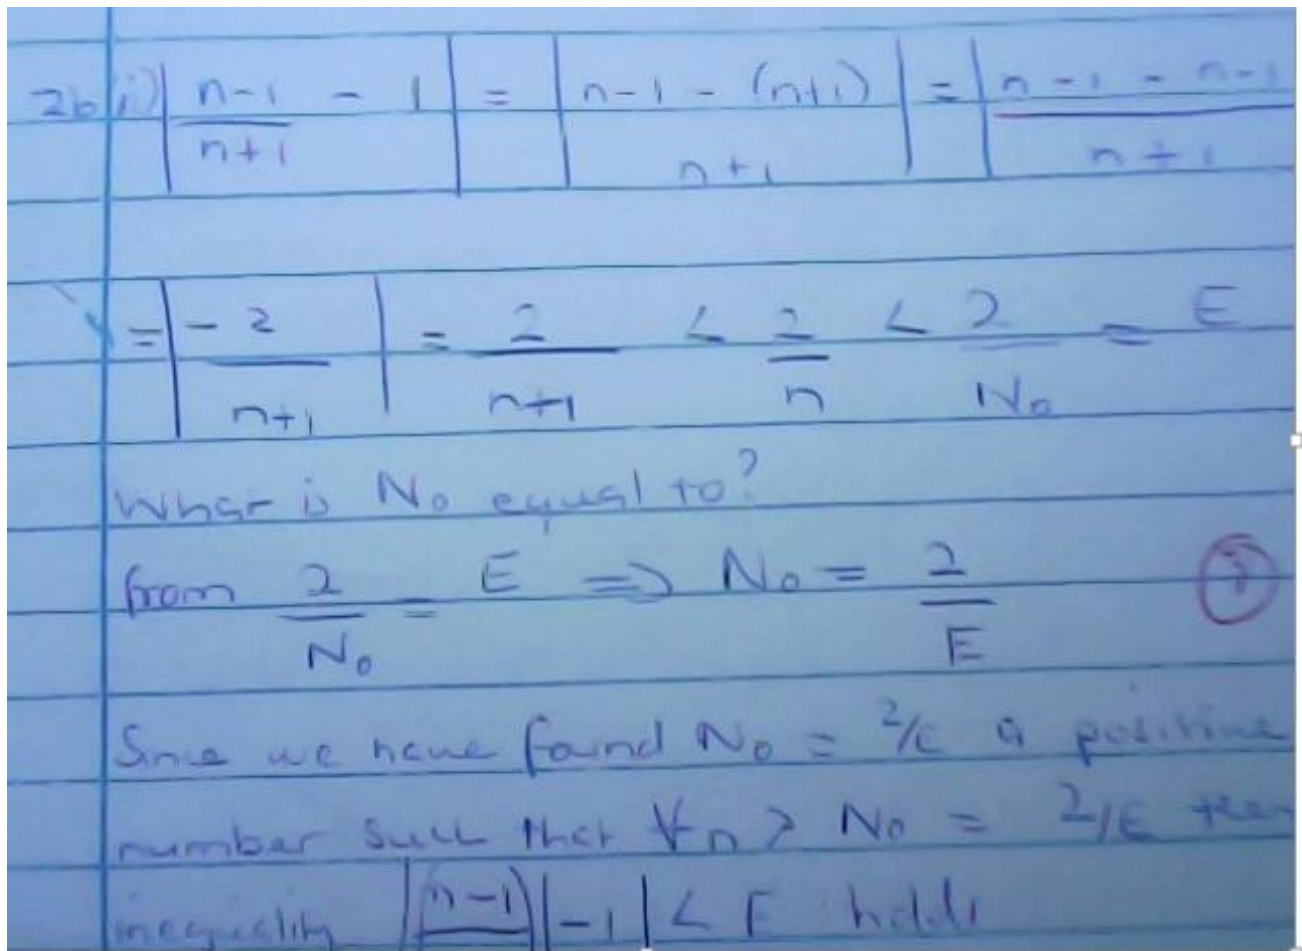 2b(ii) | n-1/n+1 - 1 | = | n-1-(n+1)/n+1 | = | n-1-n-1/n+1
= | -2/n+1 | = 2/n+1 < 2/n < 2/N₀ = E
What is N₀ equal to?
from 2/N₀ = E => N₀ = 2/E
Since we have found N₀ = 2/E a positive
number such that ∀n > N₀ = 2/E
inequality |(n-1)| -1| < E holds